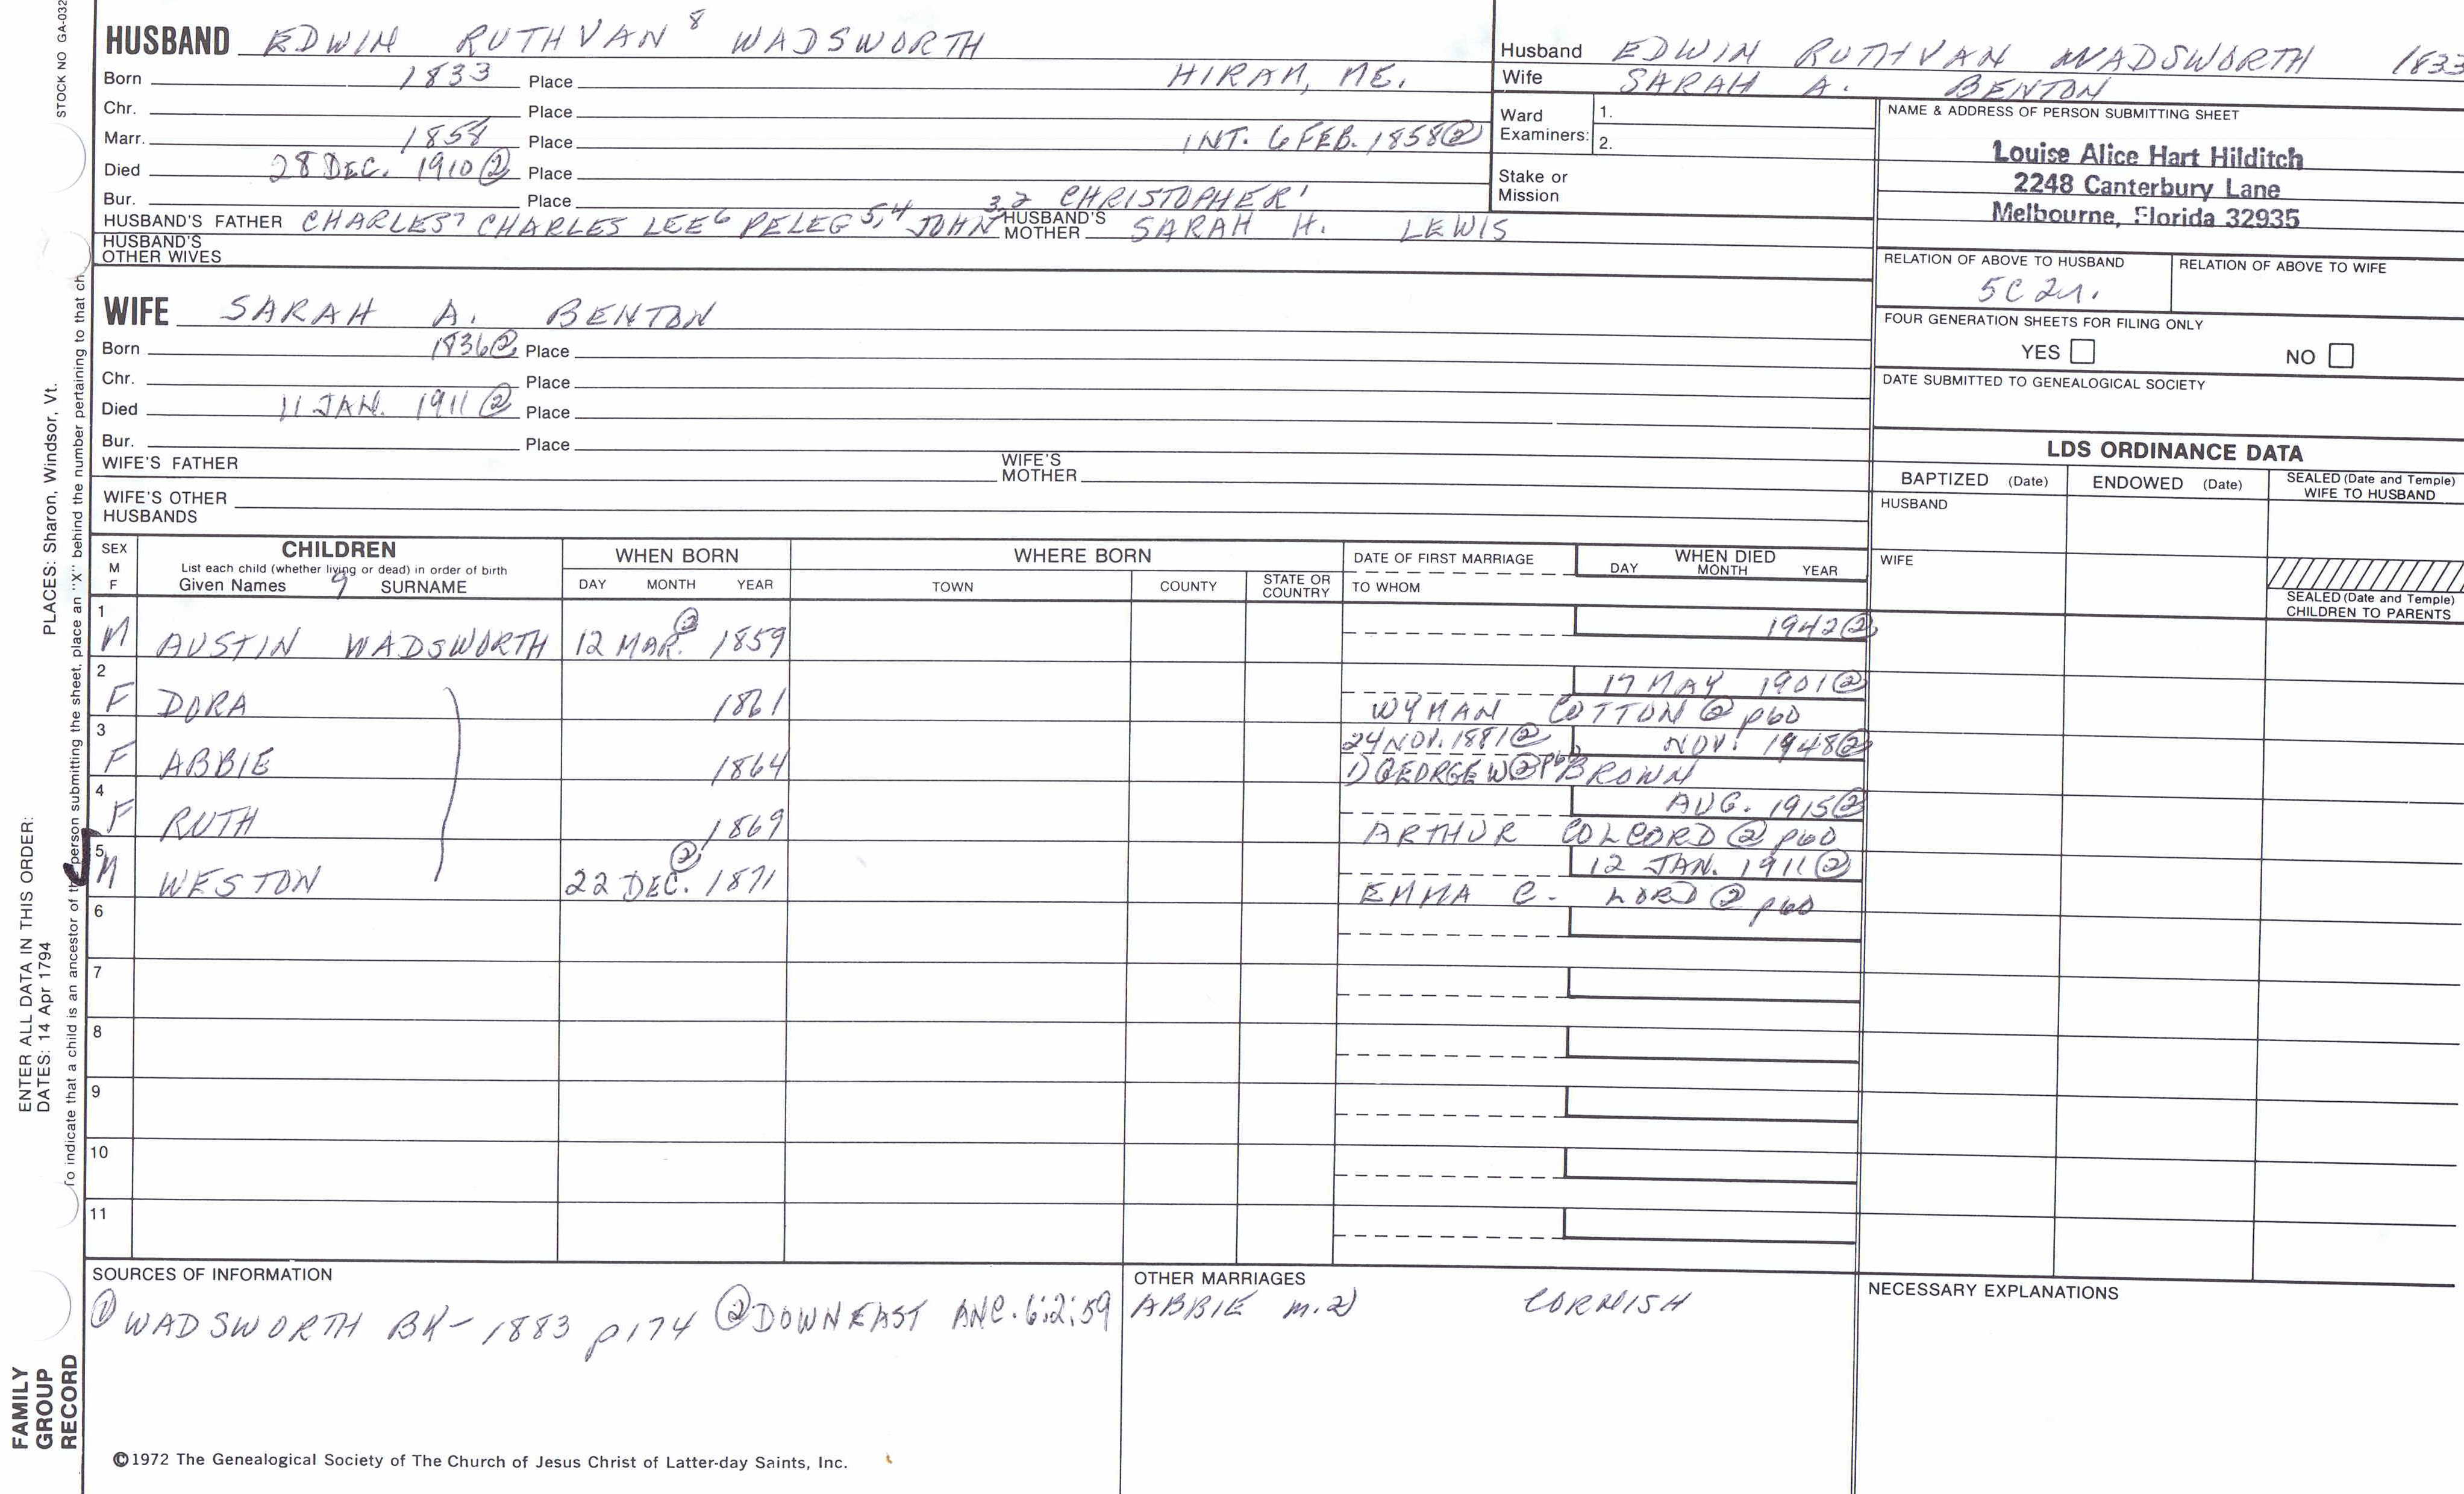 STOCK NO GA-032
PLACES: Sharon, Windsor, Vt.
ENTER ALL DATA IN THIS ORDER:
DATES: 14 Apr 1794
To indicate that a child is an ancestor of the person submitting the sheet, place an "X" behind the number pertaining to that ch
FAMILY
GROUP
RECORD
HUSBAND EDWIN RUTHVAN 8 WADSWORTH
Born 1833 Place HIRAM, ME.
Chr. Place
Marr. 1858 Place INT. 6 FEB. 1858 ②
Died 28 DEC. 1910 ② Place
Bur. Place
3,2 CHRISTOPHER 1
HUSBAND'S FATHER CHARLES 7 CHARLES LEE 6 PELEG 5,4 JOHN HUSBAND'S MOTHER SARAH H. LEWIS
HUSBAND'S OTHER WIVES
Husband EDWIN RUTHVAN WADSWORTH 1833
Wife SARAH A. BENTON
Ward Examiners: 1.
2.
Stake or Mission
NAME & ADDRESS OF PERSON SUBMITTING SHEET
Louise Alice Hart Hilditch
2248 Canterbury Lane
Melbourne, Florida 32935
RELATION OF ABOVE TO HUSBAND RELATION OF ABOVE TO WIFE
5C 2r.
FOUR GENERATION SHEETS FOR FILING ONLY
YES NO
DATE SUBMITTED TO GENEALOGICAL SOCIETY
WIFE SARAH A. BENTON
Born 1836 ② Place
Chr. Place
Died 11 JAN. 1911 ② Place
Bur. Place
WIFE'S FATHER WIFE'S MOTHER
WIFE'S OTHER HUSBANDS
LDS ORDINANCE DATA
BAPTIZED (Date) ENDOWED (Date) SEALED (Date and Temple) WIFE TO HUSBAND
HUSBAND
WIFE
SEALED (Date and Temple) CHILDREN TO PARENTS
SEX M F
CHILDREN
List each child (whether living or dead) in order of birth
Given Names 9 SURNAME
WHEN BORN
DAY MONTH YEAR
WHERE BORN
TOWN COUNTY STATE OR COUNTRY
DATE OF FIRST MARRIAGE
TO WHOM
WHEN DIED
DAY MONTH YEAR
1 M AUSTIN WADSWORTH 12 MAR. ② 1859 1942 ②
2 F DORA 1861 17 MAY 1901 ②
WYMAN COTTON ② p60
3 F ABBIE 1864 24 NOV. 1881 ② NOV. 1948 ②
1) GEORGE W ② p60 BROWN
4 F RUTH 1869 AUG. 1915 ②
ARTHUR COLCORD ② p60
5 M WESTON 22 DEC. ② 1871 12 JAN. 1911 ②
EMMA C. LORD ② p60
6
7
8
9
10
11
SOURCES OF INFORMATION
① WADSWORTH BK - 1883 p174 ② DOWNEAST ANC. 6:2:59
OTHER MARRIAGES
ABBIE m. 2) CORNISH
NECESSARY EXPLANATIONS
©1972 The Genealogical Society of The Church of Jesus Christ of Latter-day Saints, Inc.